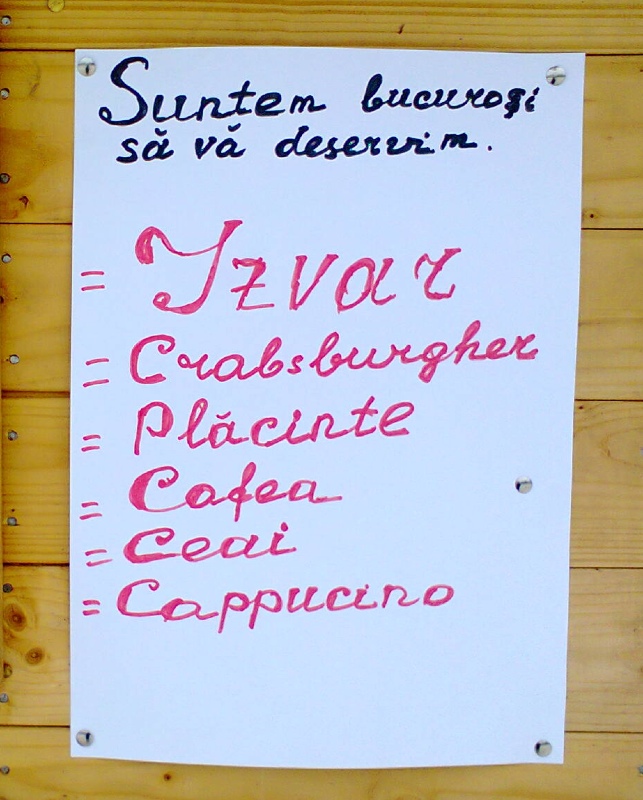 Suntem bucuroși
să vă deservim.
= Izvar
= Crabsburgher
= Plăcinte
= Cafea
= Ceai
= Cappucino